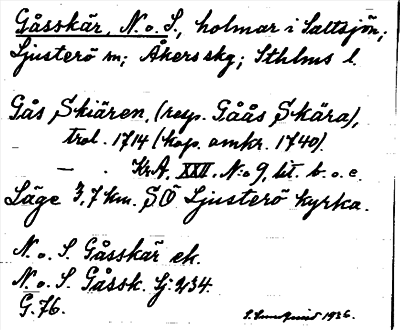 Gåsskär, N. o. S., holmar i Saltsjön;
Ljusterö sn; Åkers skg; Sthlms l.
Gås Skiären, (resp. Gåås Skära),
trol. 1714 (kop. omkr. 1740).
— . Kr.A. XXVI. N:o 9, lit. b. o. c.
Läge 3,7 km. SÖ Ljusterö kyrka.
N. o. S. Gåsskär ek.
N. o. S. Gåssk. Sj: 234.
G. 76.
1936.